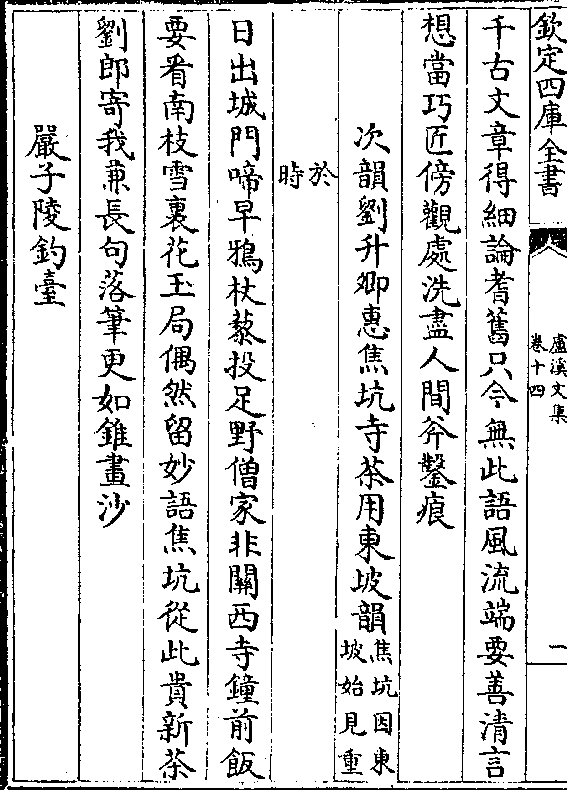 欽定四庫全書
盧溪文集
卷十四
一
千古文章得細論耆舊只今無此語風流端要善清言
想當巧匠傍觀處洗盡人間斧鑿痕
次韻劉升卿惠焦坑寺茶用東坡韻焦坑因東坡始見重
於時
日出城門啼早鴉杖藜投足野僧家非關西寺鐘前飯
要看南枝雪裏花玉局偶然留妙語焦坑從此貴新茶
劉郎寄我兼長句落筆更如錐畫沙
嚴子陵釣臺